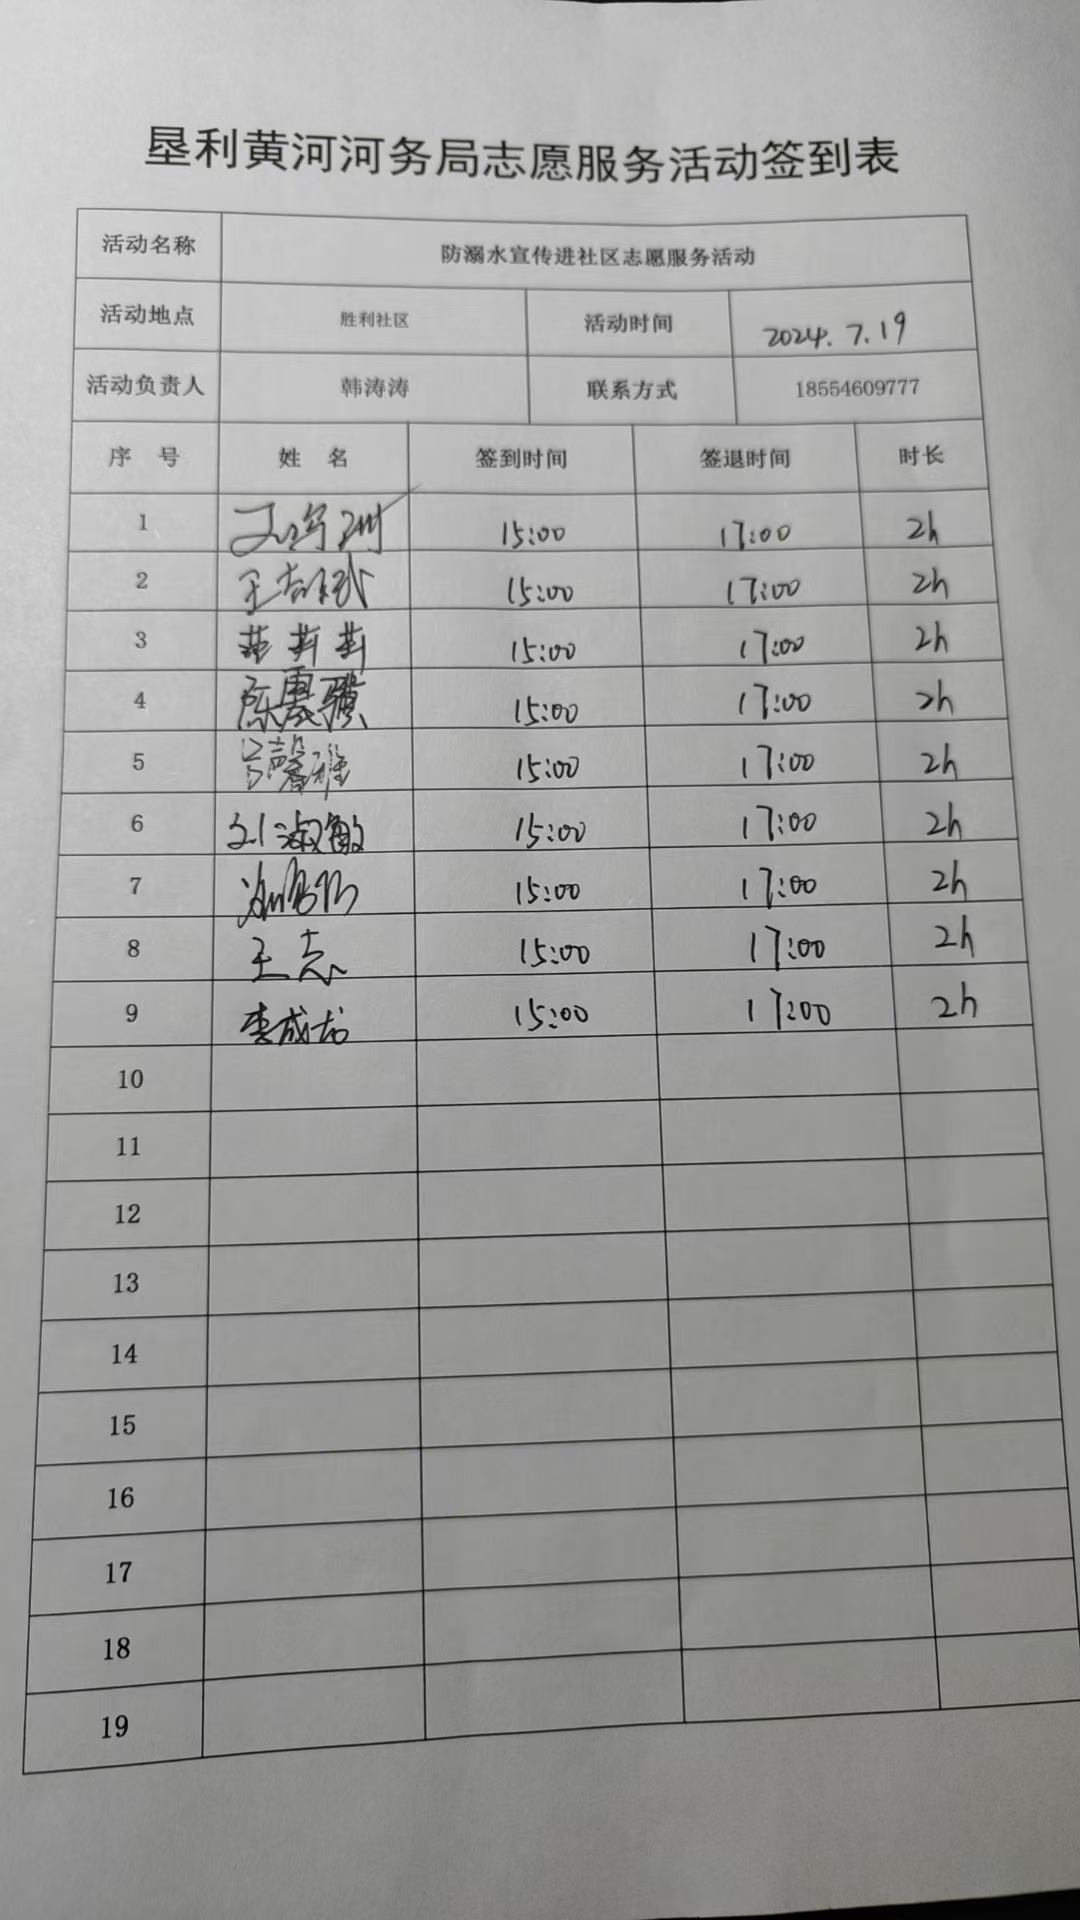 垦利黄河河务局志愿服务活动签到表
活动名称 防溺水宣传进社区志愿服务活动
活动地点 胜利社区 活动时间 2024.7.19
活动负责人 韩涛涛 联系方式 18554609777
序 号 姓 名 签到时间 签退时间 时长
1 15:00 17:00 2h
2 15:00 17:00 2h
3 15:00 17:00 2h
4 陈震骥 15:00 17:00 2h
5 15:00 17:00 2h
6 刘淑敏 15:00 17:00 2h
7 15:00 17:00 2h
8 王志 15:00 17:00 2h
9 李成龙 15:00 17:00 2h
10
11
12
13
14
15
16
17
18
19